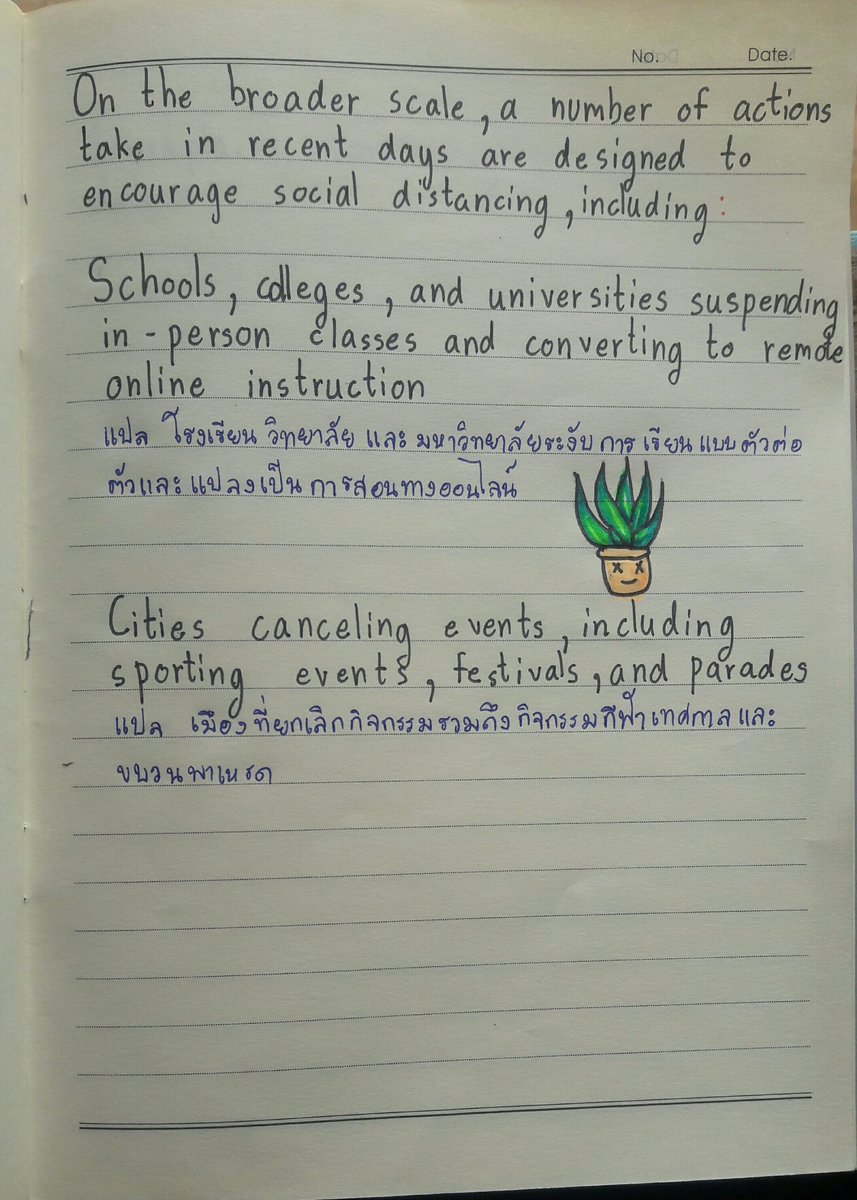 No. Date.
On the broader scale, a number of actions
take in recent days are designed to
encourage social distancing, including:
Schools, colleges, and universities suspending
in-person classes and converting to remote
online instruction
แปล โรงเรียน วิทยาลัย และ มหาวิทยาลัยระงับ การ เรียน แบบ ตัวต่อ
ตัวและ แปลงเป็น การสอนทางออนไลน์
Cities canceling events, including
sporting events, festivals, and parades
แปล เมืองที่ยกเลิกกิจกรรมรวมถึง กิจกรรมกีฬา เทศกาล และ
ขบวนพาเหรด